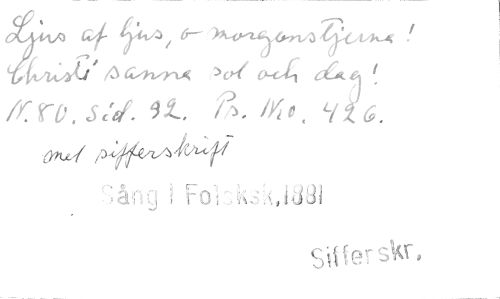 Ljus af ljus, o morgonstjerna!
Christi sanna sol och dag!
N. 80. Sid. 92. Ps. No. 426.
med sifferskrift
Sång i Folkskk, 1881
Sifferskr.